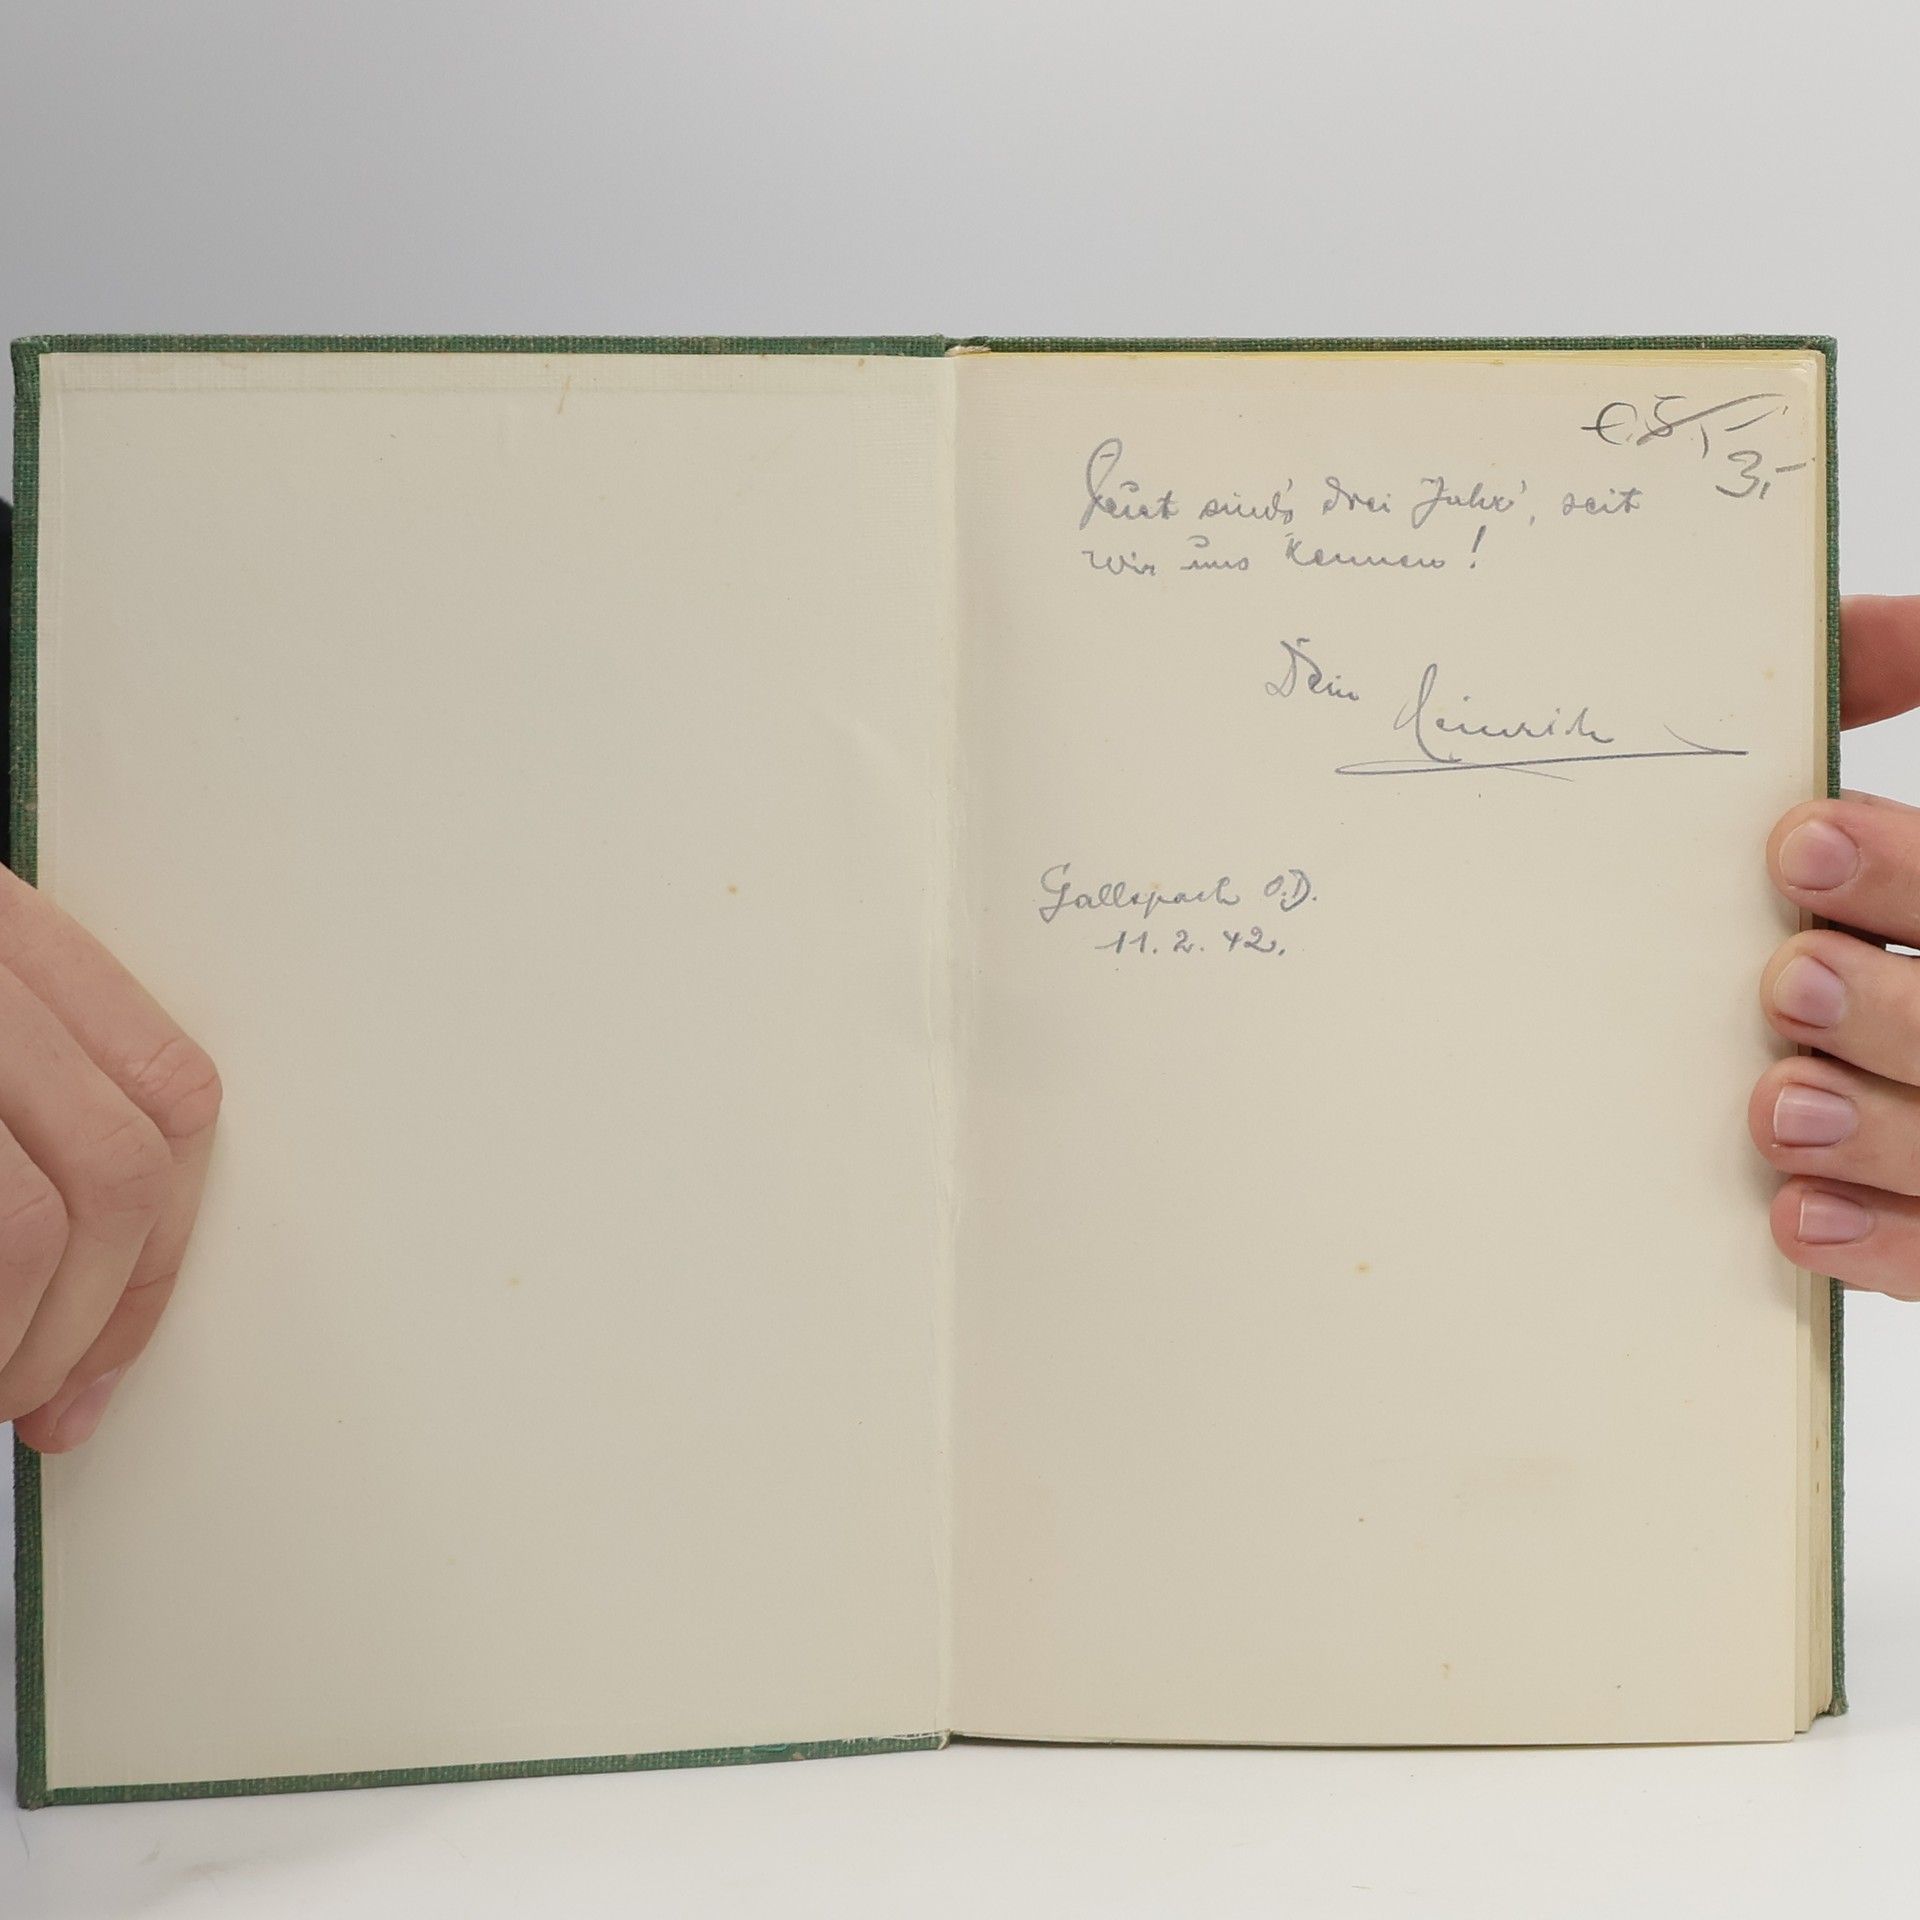 € 5,-
3,-
Heut sind's drei Jahr', seit
wir uns kennen!
Dein Heinrich
Gallspach O.D.
11. 2. 42.